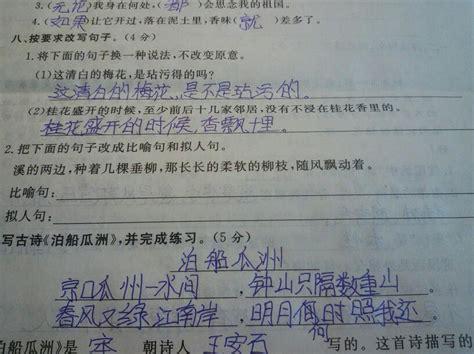 3.(无论)我身在何处,(都)会思念我的祖国。
4.(如果)让它开过,落在泥土里,香味(就)差多了。
八、按要求改写句子。(4分)
1.将下面的句子换一种说法,不改变原意。
(1)这清白的梅花,是玷污得的吗?
这清白的梅花,是不是玷污的。
(2)桂花盛开的时候,至少前后十几家邻居,没有不浸在桂花香里的。
桂花盛开的时候,香飘十里。
2.把下面的句子改成比喻句和拟人句。
溪的两边,种着几棵垂柳,那长长的柔软的柳枝,随风飘动着。
比喻句:
拟人句:
写古诗《泊船瓜洲》,并完成练习。(5分)
泊船瓜洲
京口瓜州一水间,钟山只隔数重山。
春风又绿江南岸,明月何时照我还
何
泊船瓜洲》是 宋 朝诗人 王安石 写的。这首诗描写的